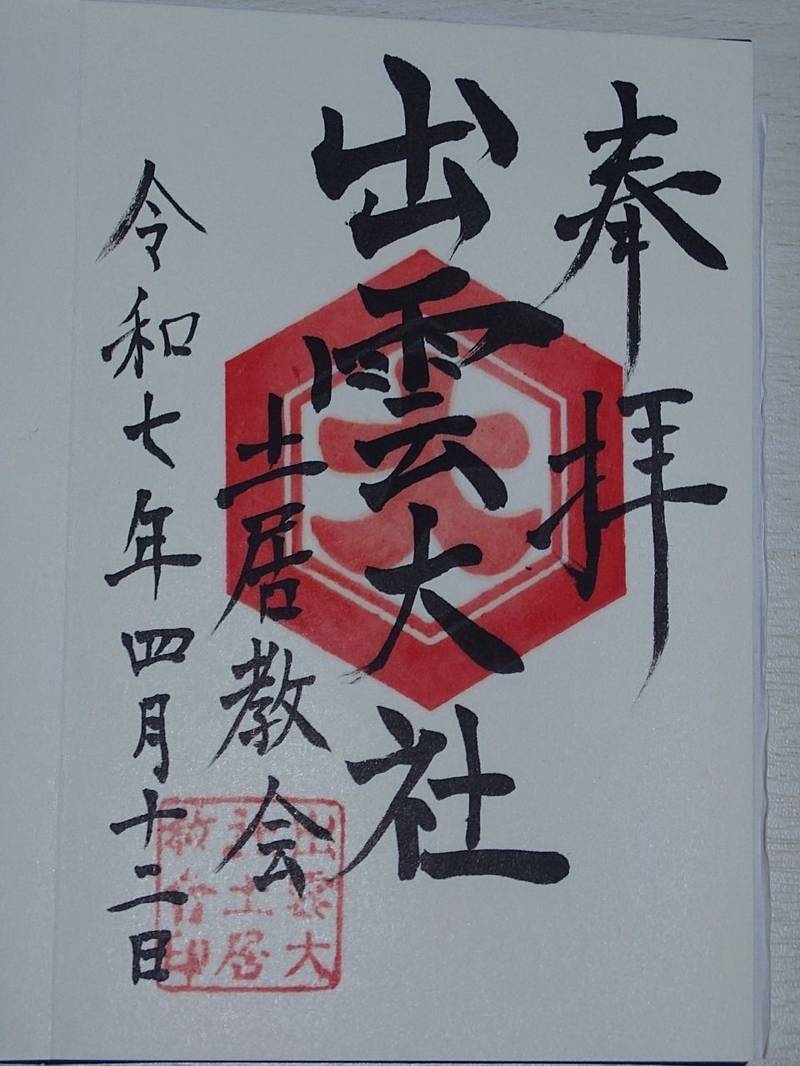 奉拝
出雲大社
土居教会
令和七年四月十二日
大
出雲大
社土居
教会印